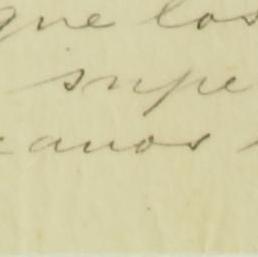 que los
supe
canos